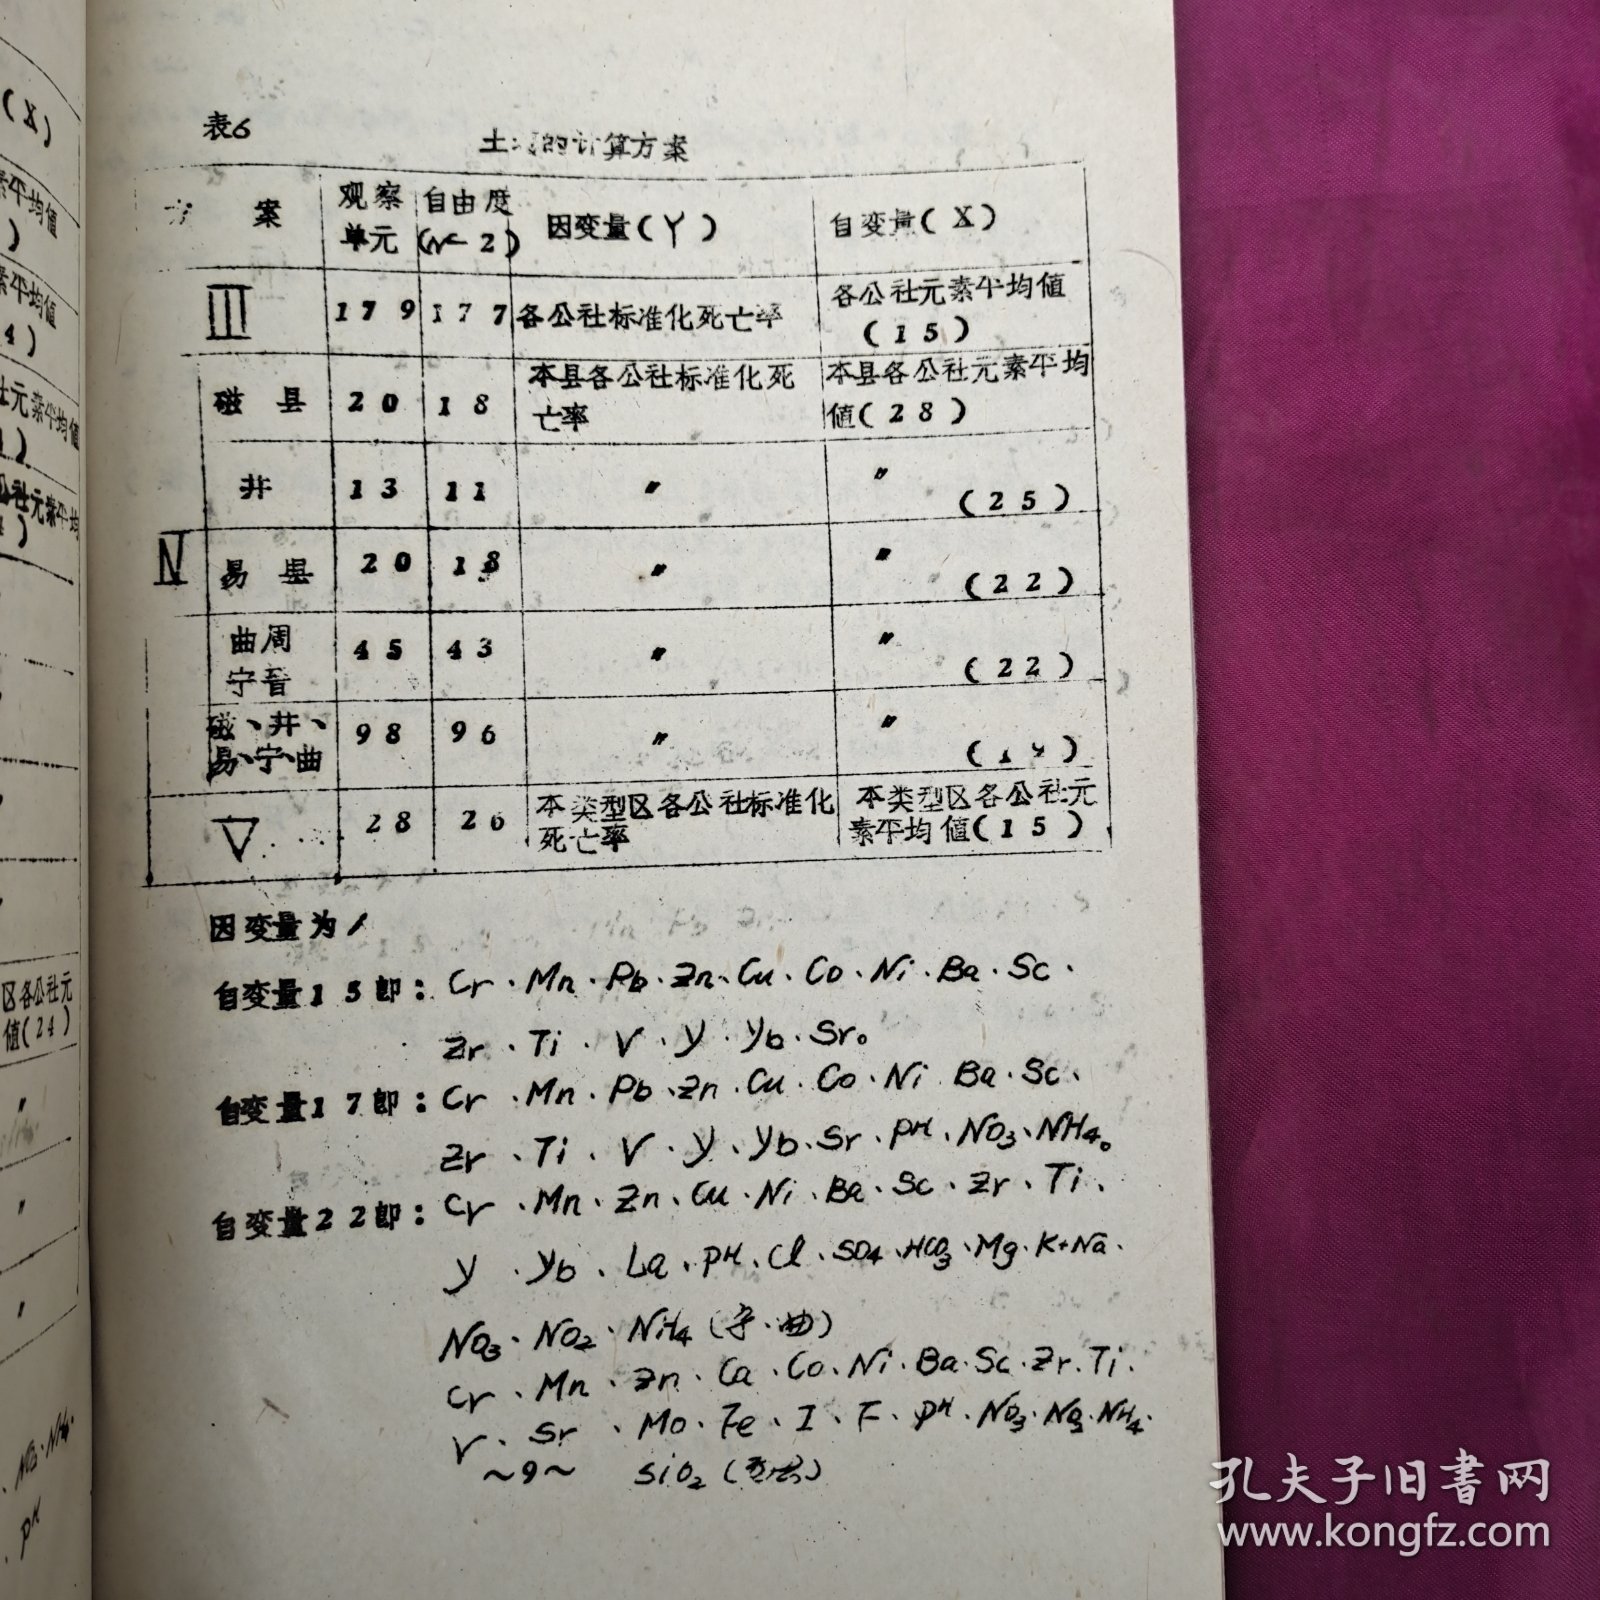 表6
土 的计算方案
方 案 观察单元 自由度(N-2) 因变量(Y) 自变量(X)
III 179 177 各公社标准化死亡率 各公社元素平均値(15)
磁县 20 18 本县各公社标准化死亡率 本县各公社元素平均値(28)
井 13 11 〃 〃(25)
IV 易县 20 18 〃 〃(22)
曲周 宁晋 45 43 〃 〃(22)
磁、井、易、宁、曲 98 96 〃 〃(19)
V 28 26 本类型区各公社标准化死亡率 本类型区各公社元素平均値(15)
因变量为1
自变量15即：Cr、Mn、Pb、Zn、Cu、Co、Ni、Ba、Sc、
Zr、Ti、V、Y、Yb、Sr。
自变量17即：Cr、Mn、Pb、Zn、Cu、Co、Ni Ba、Sc、
Zr、Ti、V、Y、Yb、Sr、PH、NO3、NH4。
自变量22即：Cr、Mn、Zn、Cu、Ni、Ba、Sc、Zr、Ti、
Y、Yb、La、PH、Cl、SO4、HCO3、Mg、K+Na、
NO3、NO2、NH4(宁、曲)
Cr、Mn、Zn、Ca、Co、Ni、Ba、Sc、Zr、Ti、
V、Sr、Mo、Fe、I、F、PH、NO3、NO2、NH4、
SiO2
～9～
(X)
素平均値
)
素平均値
4)
社元素平均値
)
公社元素平均
)
区各公社元
値(24)
〃
NO3、NH4、
PH
孔夫子旧书网
www.kongfz.com